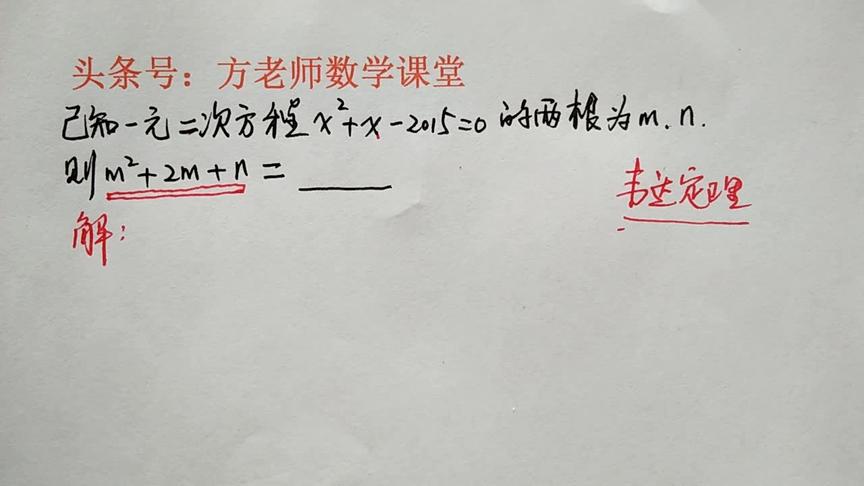 头条号：方老师数学课堂
已知一元二次方程x²+x-2015=0的两根为m.n.
则m²+2m+n=____
韦达定理
解：